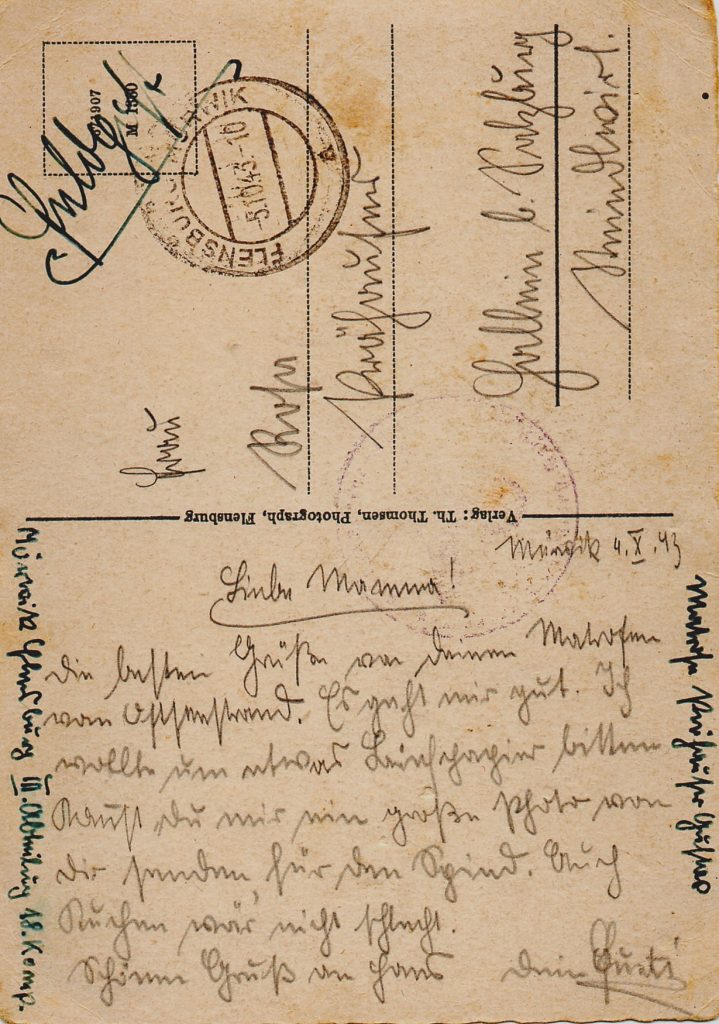 Feldpost
M 1907
FLENSBURG-MÜRWIK
-5.10.43.-10
A
Frau
Rosa
Prähauser
Hallein b. Salzburg
Verlag: Th. Thomsen, Photograph, Flensburg
Mürwik 4.X.43
Liebe Mamma!
Die besten Grüße von deinem Matrosen
vom Ostseestrand. Es geht mir gut. Ich
wollte um etwas Briefpapier bitten
Kannst du mir ein große Photo von
dir senden für den Spind. Auch
Kuchen wär nicht schlecht.
Schönen Gruß an Hans dein Gusti
Matrose Prähauser Gustav
Mürwik Flensburg III. Abteilung 18. Komp.